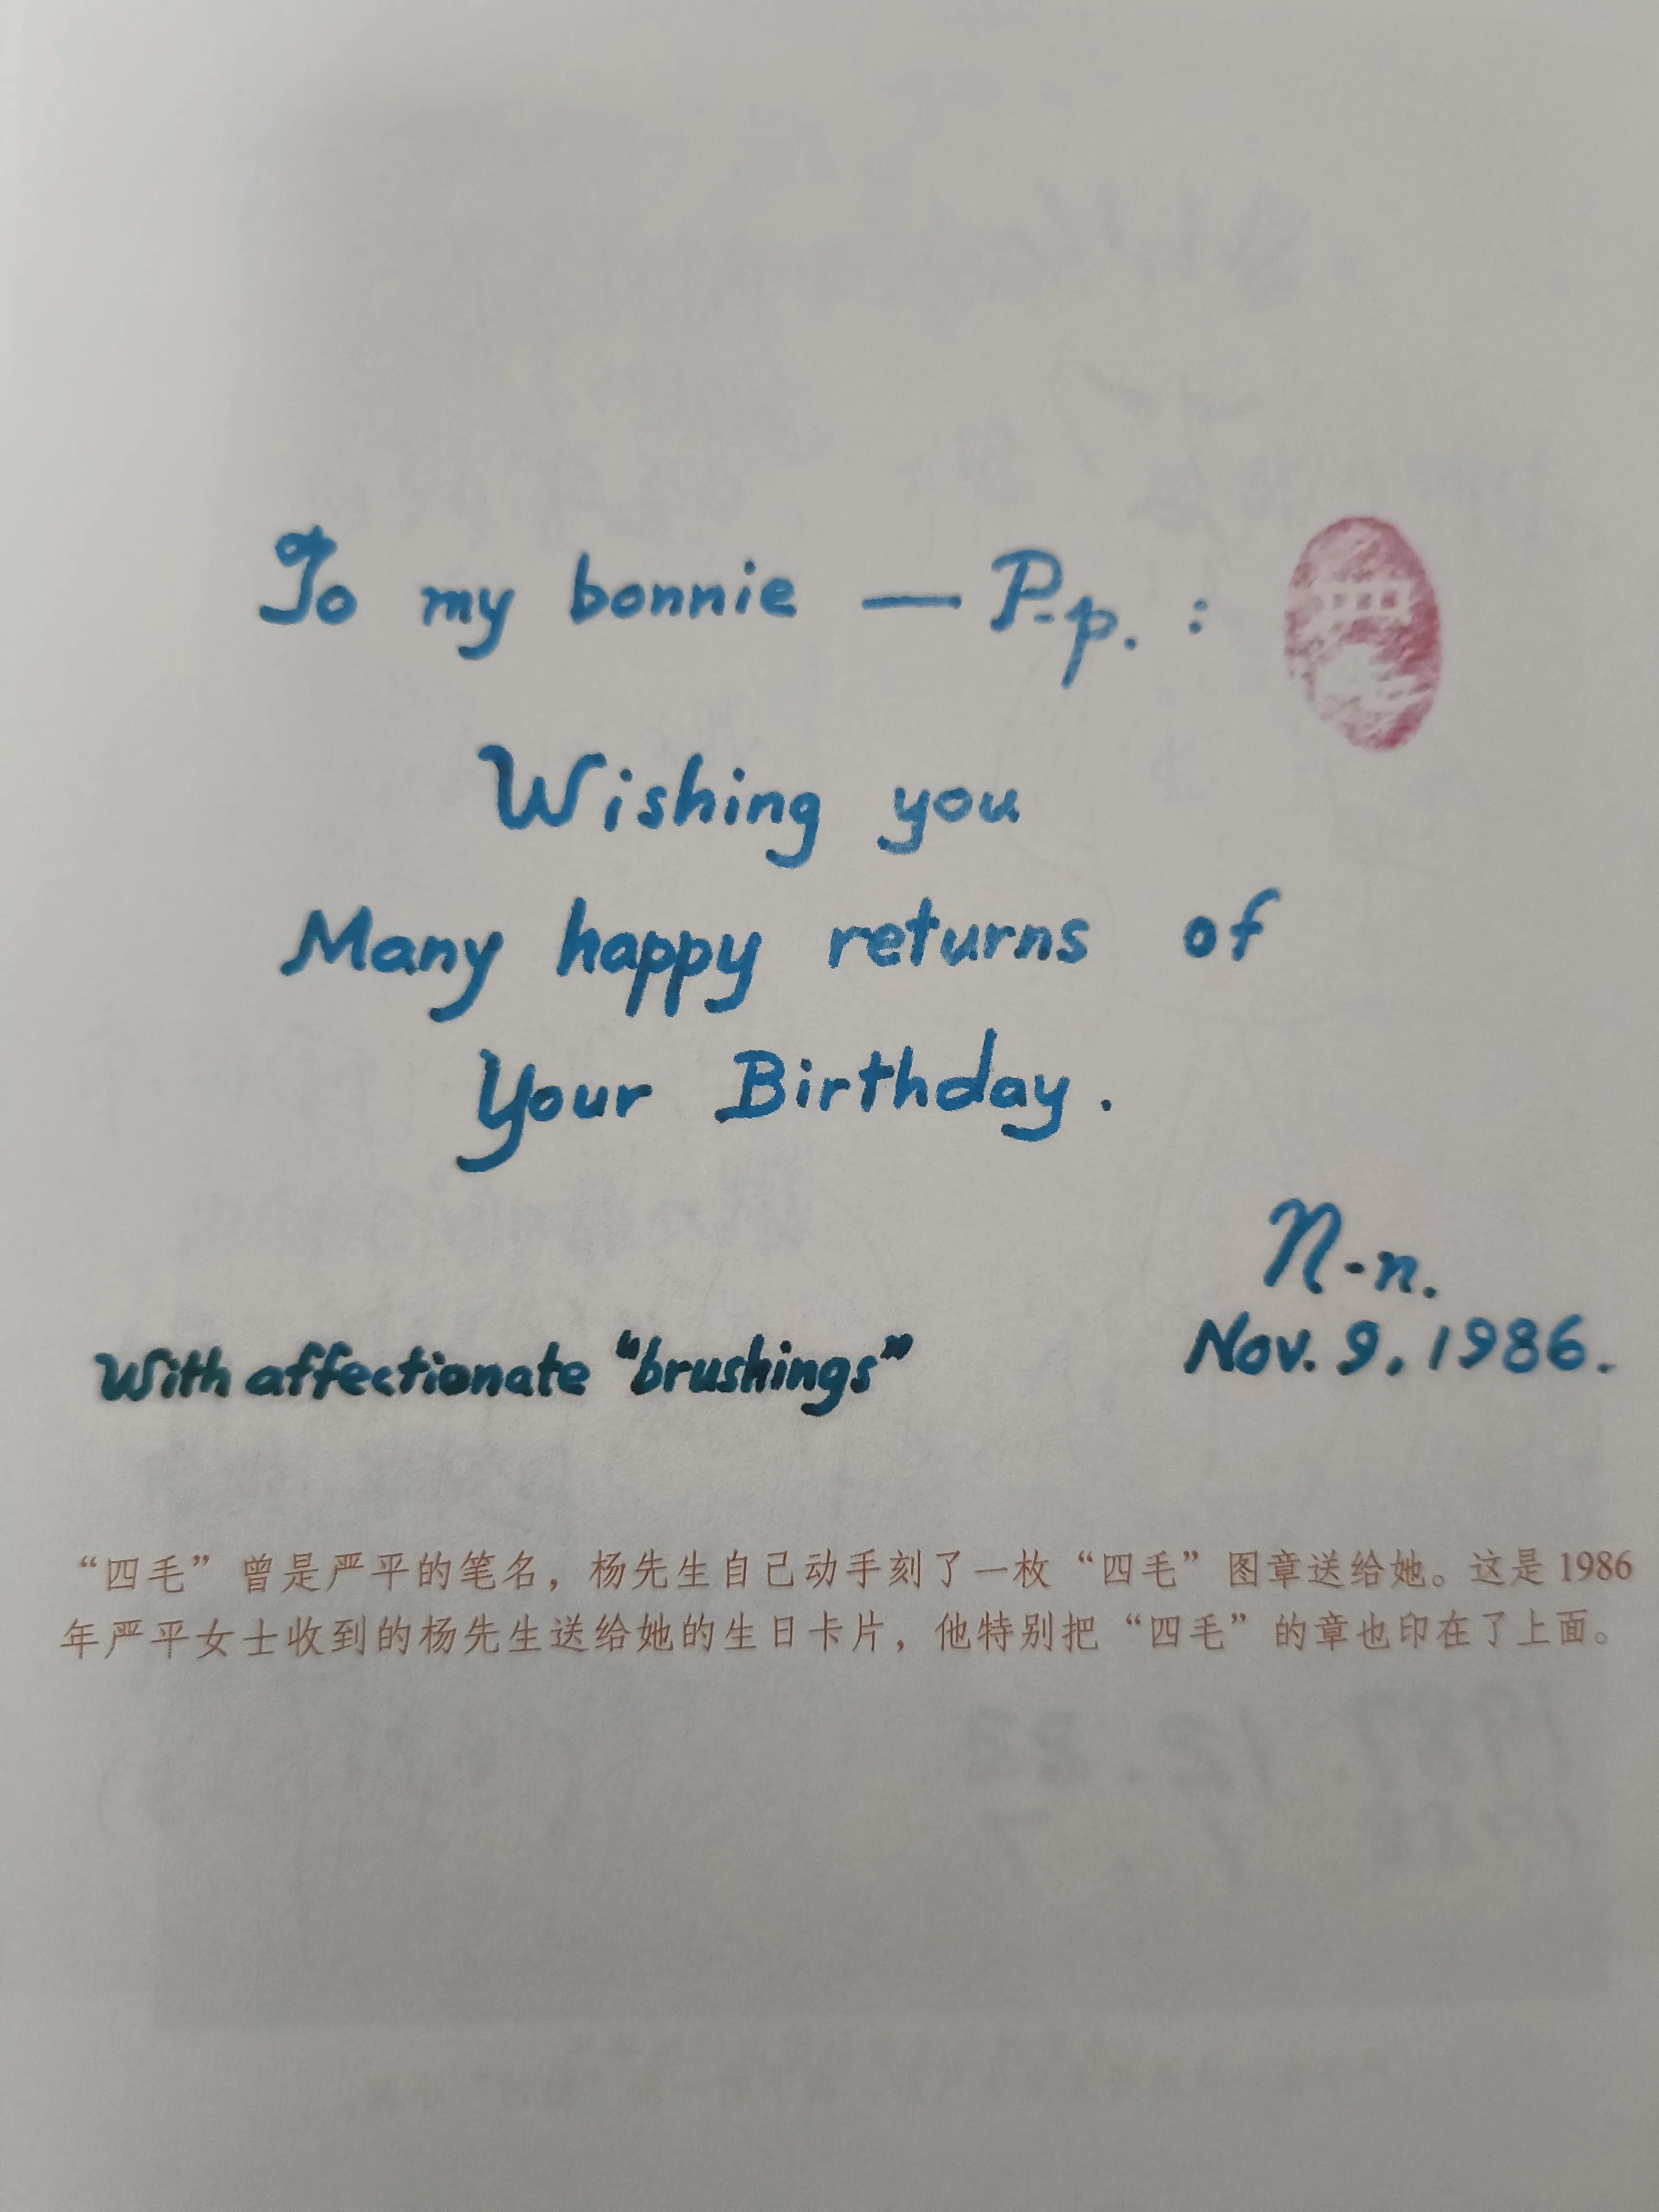 To my bonnie — P-p. :
Wishing you
Many happy returns of
Your Birthday.
N-n.
Nov. 9, 1986.
With affectionate "brushings"
“四毛”曾是严平的笔名，杨先生自己动手刻了一枚“四毛”图章送给她。这是1986
年严平女士收到的杨先生送给她的生日卡片，他特别把“四毛”的章也印在了上面。